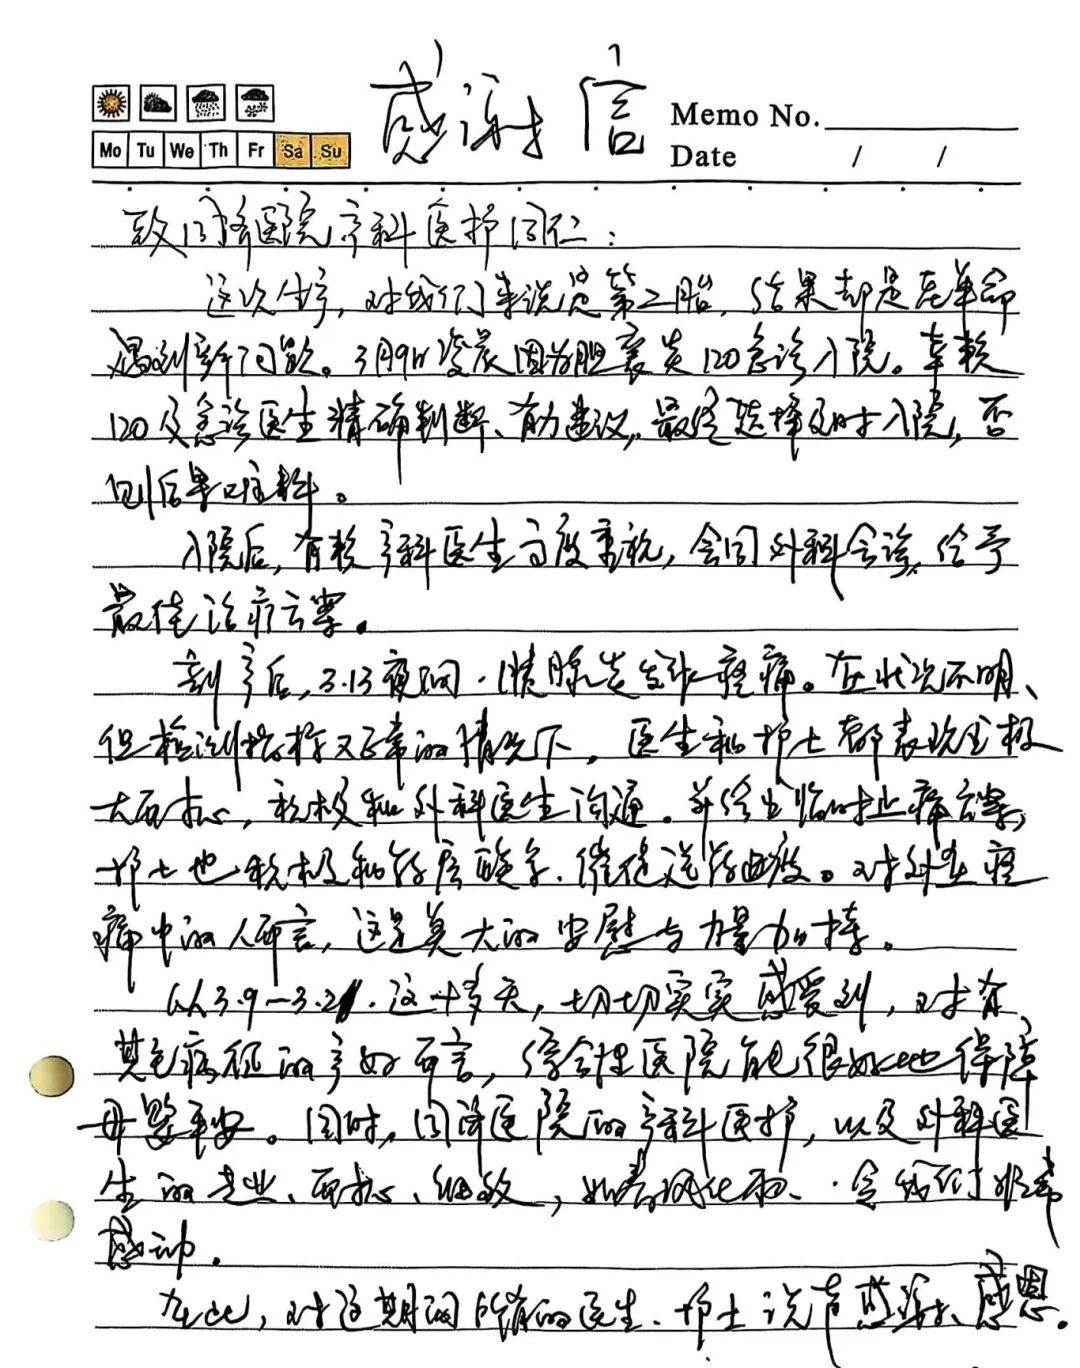 感谢信
Memo No.
Mo Tu We Th Fr Sa Su
Date / /
致同济医院产科医护同仁：
这次生产，对我们来说是第二胎，结果却是在革命
遇到新问题。3月9日凌晨因为胆囊炎120急诊入院。幸赖
120及急诊医生精确判断、有力建议，最终选择及时入院，否
则后果难料。
入院后，有赖产科医生高度重视，会同外科会诊，给予
最佳治疗方案。
剖产后，3.13夜间，胰腺炎发作疼痛。在状况不明、
但检测指标又正常的情况下，医生和护士都表现出极
大耐心，积极和外科医生沟通。并给出临时止痛方案，
护士也积极和药房联系、催促送药进度。对身在疼
痛中的人而言，这是莫大的安慰与力量加持。
从3.9—3.21，这十多天，切切实实感受到，对有
其它病征的产妇而言，综合性医院能很好地保障
母婴平安。同时，同济医院的产科医护，以及外科医
生的专业、耐心、细致，如春风化雨，令我们非常
感动。
在此，对这期间所有的医生、护士说声感谢、感恩。